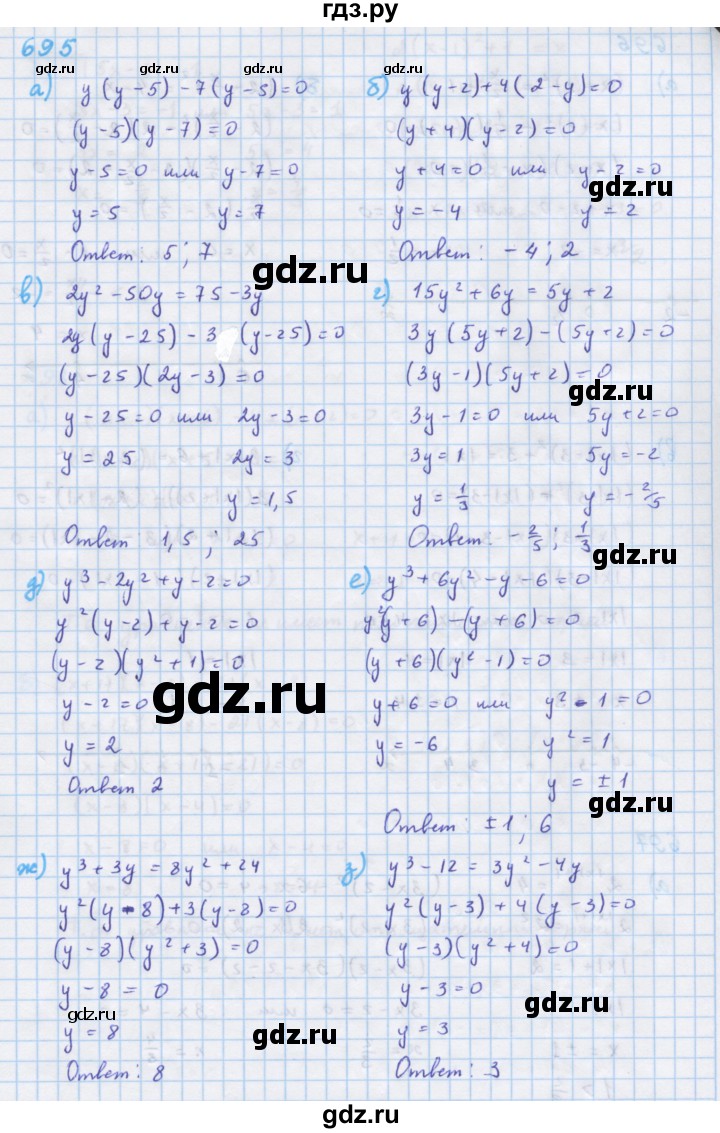 гдз.ру
695
а) y(y-5)-7(y-5)=0
(y-5)(y-7)=0
y-5=0 или y-7=0
y=5 y=7
Ответ: 5; 7
б) y(y-2)+4(2-y)=0
(y+4)(y-2)=0
y+4=0 или y-2=0
y=-4 y=2
Ответ: -4; 2
в) 2y²-50y=75-3y
2y(y-25)-3(y-25)=0
(y-25)(2y-3)=0
y-25=0 или 2y-3=0
y=25 2y=3
y=1,5
Ответ 1,5; 25
г) 15y²+6y=5y+2
3y(5y+2)-(5y+2)=0
(3y-1)(5y+2)=0
3y-1=0 или 5y+2=0
3y=1 5y=-2
y=1/3 y=-2/5
Ответ: -2/5; 1/3
д) y³-2y²+y-2=0
y²(y-2)+y-2=0
(y-2)(y²+1)=0
y-2=0
y=2
Ответ 2
е) y³+6y²-y-6=0
y²(y+6)-(y+6)=0
(y+6)(y²-1)=0
y+6=0 или y²-1=0
y=-6 y²=1
y=±1
Ответ: ±1; 6
ж) y³+3y=8y²+24
y²(y-8)+3(y-8)=0
(y-8)(y²+3)=0
y-8=0
y=8
Ответ: 8
з) y³-12=3y²-4y
y²(y-3)+4(y-3)=0
(y-3)(y²+4)=0
y-3=0
y=3
Ответ: 3
gdz.ru
gdz.ru
gdz.ru
gdz.ru
gdz.ru
gdz.ru
gdz.ru
gdz.ru
gdz.ru
gdz.ru
gdz.ru
gdz.ru
gdz.ru